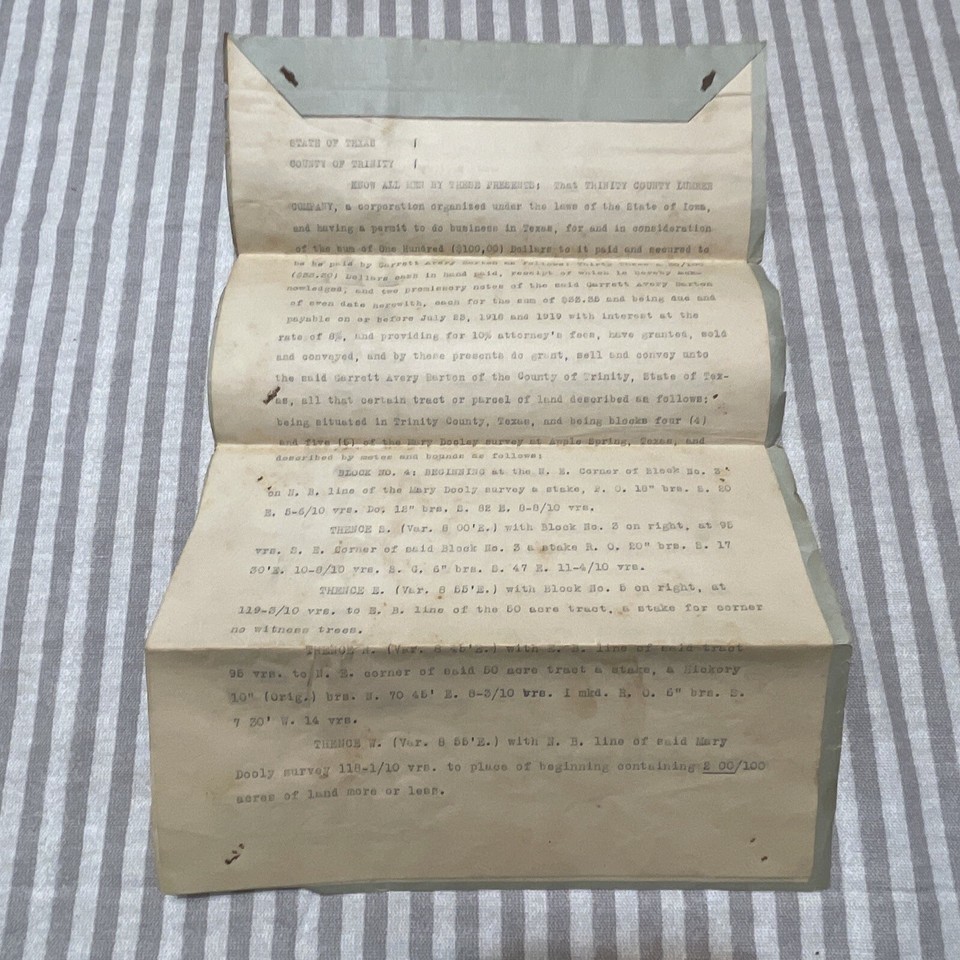 STATE OF TEXAS (
COUNTY OF TRINITY (
KNOW ALL MEN BY THESE PRESENTS; That TRINITY COUNTY LUMBER
COMPANY, a corporation organized under the laws of the State of Iowa,
and having a permit to do business in Texas, for and in consideration
of the sum of One Hundred ($100,00) Dollars to it paid and secured to
be be paid by Garrett Avery Barton as follows: Thirty Three &
Dollars cash in hand paid, receipt of which is hereby ack-
nowledged, and two promissory notes of the said Garrett Avery Barton
of even date herewith, each for the sum of $33.33 and being due and
payable on or before July 23, 1918 and 1919 with interest at the
rate of 8%, and providing for 10% attorney's fees, have granted, sold
and conveyed, and by these presents do grant, sell and convey unto
the said Garrett Avery Barton of the County of Trinity, State of Tex-
as, all that certain tract or parcel of land described as follows;
being situated in Trinity County, Texas, and being blocks four (4)
and five (5) of the Mary Dooley survey at Apple Spring, Texas, and
described by metes and bounds as follows;
BLOCK NO. 4: BEGINNING at the N. E. Corner of Block No. 3
on N. B. line of the Mary Dooly survey a stake, P. O. 18" brs. S. 20
E. 5-6/10 vrs. Do. 12" brs. S. 82 E. 8-8/10 vrs.
THENCE S. (Var. 8 00'E.) with Block No. 3 on right, at 95
vrs. S. E. Corner of said Block No. 3 a stake R. O. 20" brs. S. 17
30'E. 10-8/10 vrs. S. G. 6" brs. S. 47 E. 11-4/10 vrs.
THENCE E. (Var. 8 55'E.) with Block No. 5 on right, at
119-3/10 vrs. to E. B. line of the 50 acre tract, a stake for corner
no witness trees.
THENCE N. (Var. 8 45'E.) with E. B. line of said tract
95 vrs. to N. E. corner of said 50 acre tract a stake, a Hickory
10" (Orig.) brs. N. 70 45' E. 8-3/10 vrs. I mkd. R. O. 6" brs. S.
7 30' W. 14 vrs.
THENCE W. (Var. 8 55'E.) with N. B. line of said Mary
Dooly survey 118-1/10 vrs. to place of beginning containing 2 00/100
acres of land more or less.